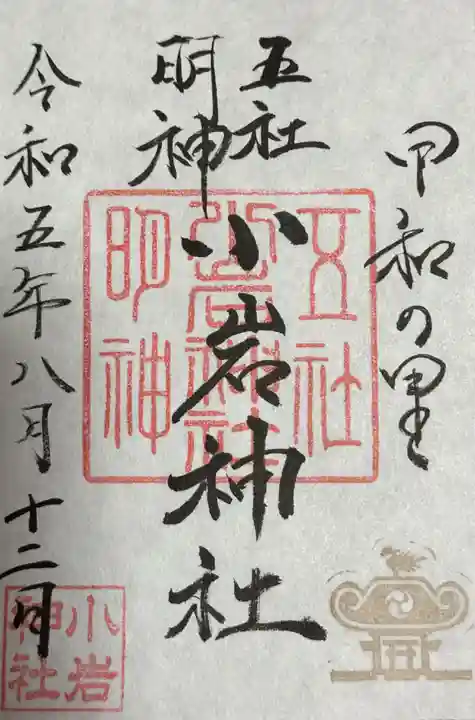 甲和の里
五社
明神
小岩神社
令和五年八月十二日
五社
小岩神社
明神
小岩
神社